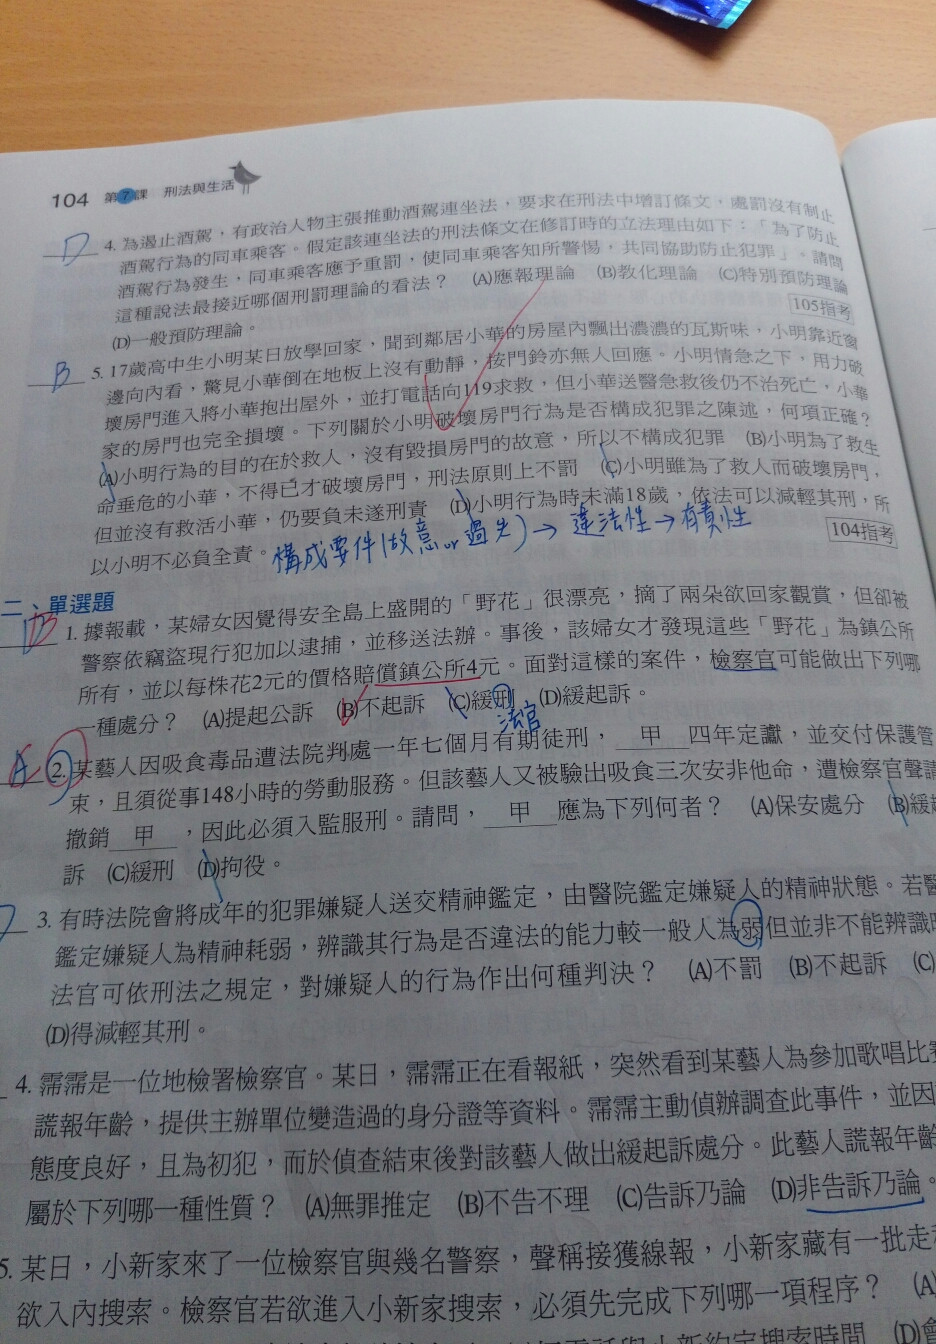 104 第7課 刑法與生活
D 4. 為遏止酒駕，有政治人物主張推動酒駕連坐法，要求在刑法中增訂條文，處罰沒有制止
酒駕行為的同車乘客。假定該連坐法的刑法條文在修訂時的立法理由如下：「為了防止
酒駕行為發生，同車乘客應予重罰，使同車乘客知所警惕，共同協助防止犯罪」。請問
這種說法最接近哪個刑罰理論的看法？ (A)應報理論 (B)教化理論 (C)特別預防理論
(D)一般預防理論。 105指考
B 5. 17歲高中生小明某日放學回家，聞到鄰居小華的房屋內飄出濃濃的瓦斯味，小明靠近窗
邊向內看，驚見小華倒在地板上沒有動靜，按門鈴亦無人回應。小明情急之下，用力破
壞房門進入將小華抱出屋外，並打電話向119求救，但小華送醫急救後仍不治死亡，小華
家的房門也完全損壞。下列關於小明破壞房門行為是否構成犯罪之陳述，何項正確？
(A)小明行為的目的在於救人，沒有毀損房門的故意，所以不構成犯罪 (B)小明為了救生
命垂危的小華，不得已才破壞房門，刑法原則上不罰 (C)小明雖為了救人而破壞房門，
但並沒有救活小華，仍要負未遂刑責 (D)小明行為時未滿18歲，依法可以減輕其刑，所
以小明不必負全責。 104指考
構成要件(故意or過失)→違法性→有責性
二、單選題
B 1. 據報載，某婦女因覺得安全島上盛開的「野花」很漂亮，摘了兩朵欲回家觀賞，但卻被
警察依竊盜現行犯加以逮捕，並移送法辦。事後，該婦女才發現這些「野花」為鎮公所
所有，並以每株花2元的價格賠償鎮公所4元。面對這樣的案件，檢察官可能做出下列哪
一種處分？ (A)提起公訴 (B)不起訴 (C)緩刑 (D)緩起訴。
法官
2. 某藝人因吸食毒品遭法院判處一年七個月有期徒刑， 甲 四年定讞，並交付保護管
束，且須從事148小時的勞動服務。但該藝人又被驗出吸食三次安非他命，遭檢察官聲請
撤銷 甲 ，因此必須入監服刑。請問， 甲 應為下列何者？ (A)保安處分 (B)緩起
訴 (C)緩刑 (D)拘役。
3. 有時法院會將成年的犯罪嫌疑人送交精神鑑定，由醫院鑑定嫌疑人的精神狀態。若醫
鑑定嫌疑人為精神耗弱，辨識其行為是否違法的能力較一般人為弱但並非不能辨識時
法官可依刑法之規定，對嫌疑人的行為作出何種判決？ (A)不罰 (B)不起訴 (C)
(D)得減輕其刑。
4. 霈霈是一位地檢署檢察官。某日，霈霈正在看報紙，突然看到某藝人為參加歌唱比賽
謊報年齡，提供主辦單位變造過的身分證等資料。霈霈主動偵辦調查此事件，並因
態度良好，且為初犯，而於偵查結束後對該藝人做出緩起訴處分。此藝人謊報年齡
屬於下列哪一種性質？ (A)無罪推定 (B)不告不理 (C)告訴乃論 (D)非告訴乃論。
5. 某日，小新家來了一位檢察官與幾名警察，聲稱接獲線報，小新家藏有一批走私
欲入內搜索。檢察官若欲進入小新家搜索，必須先完成下列哪一項程序？ (A)